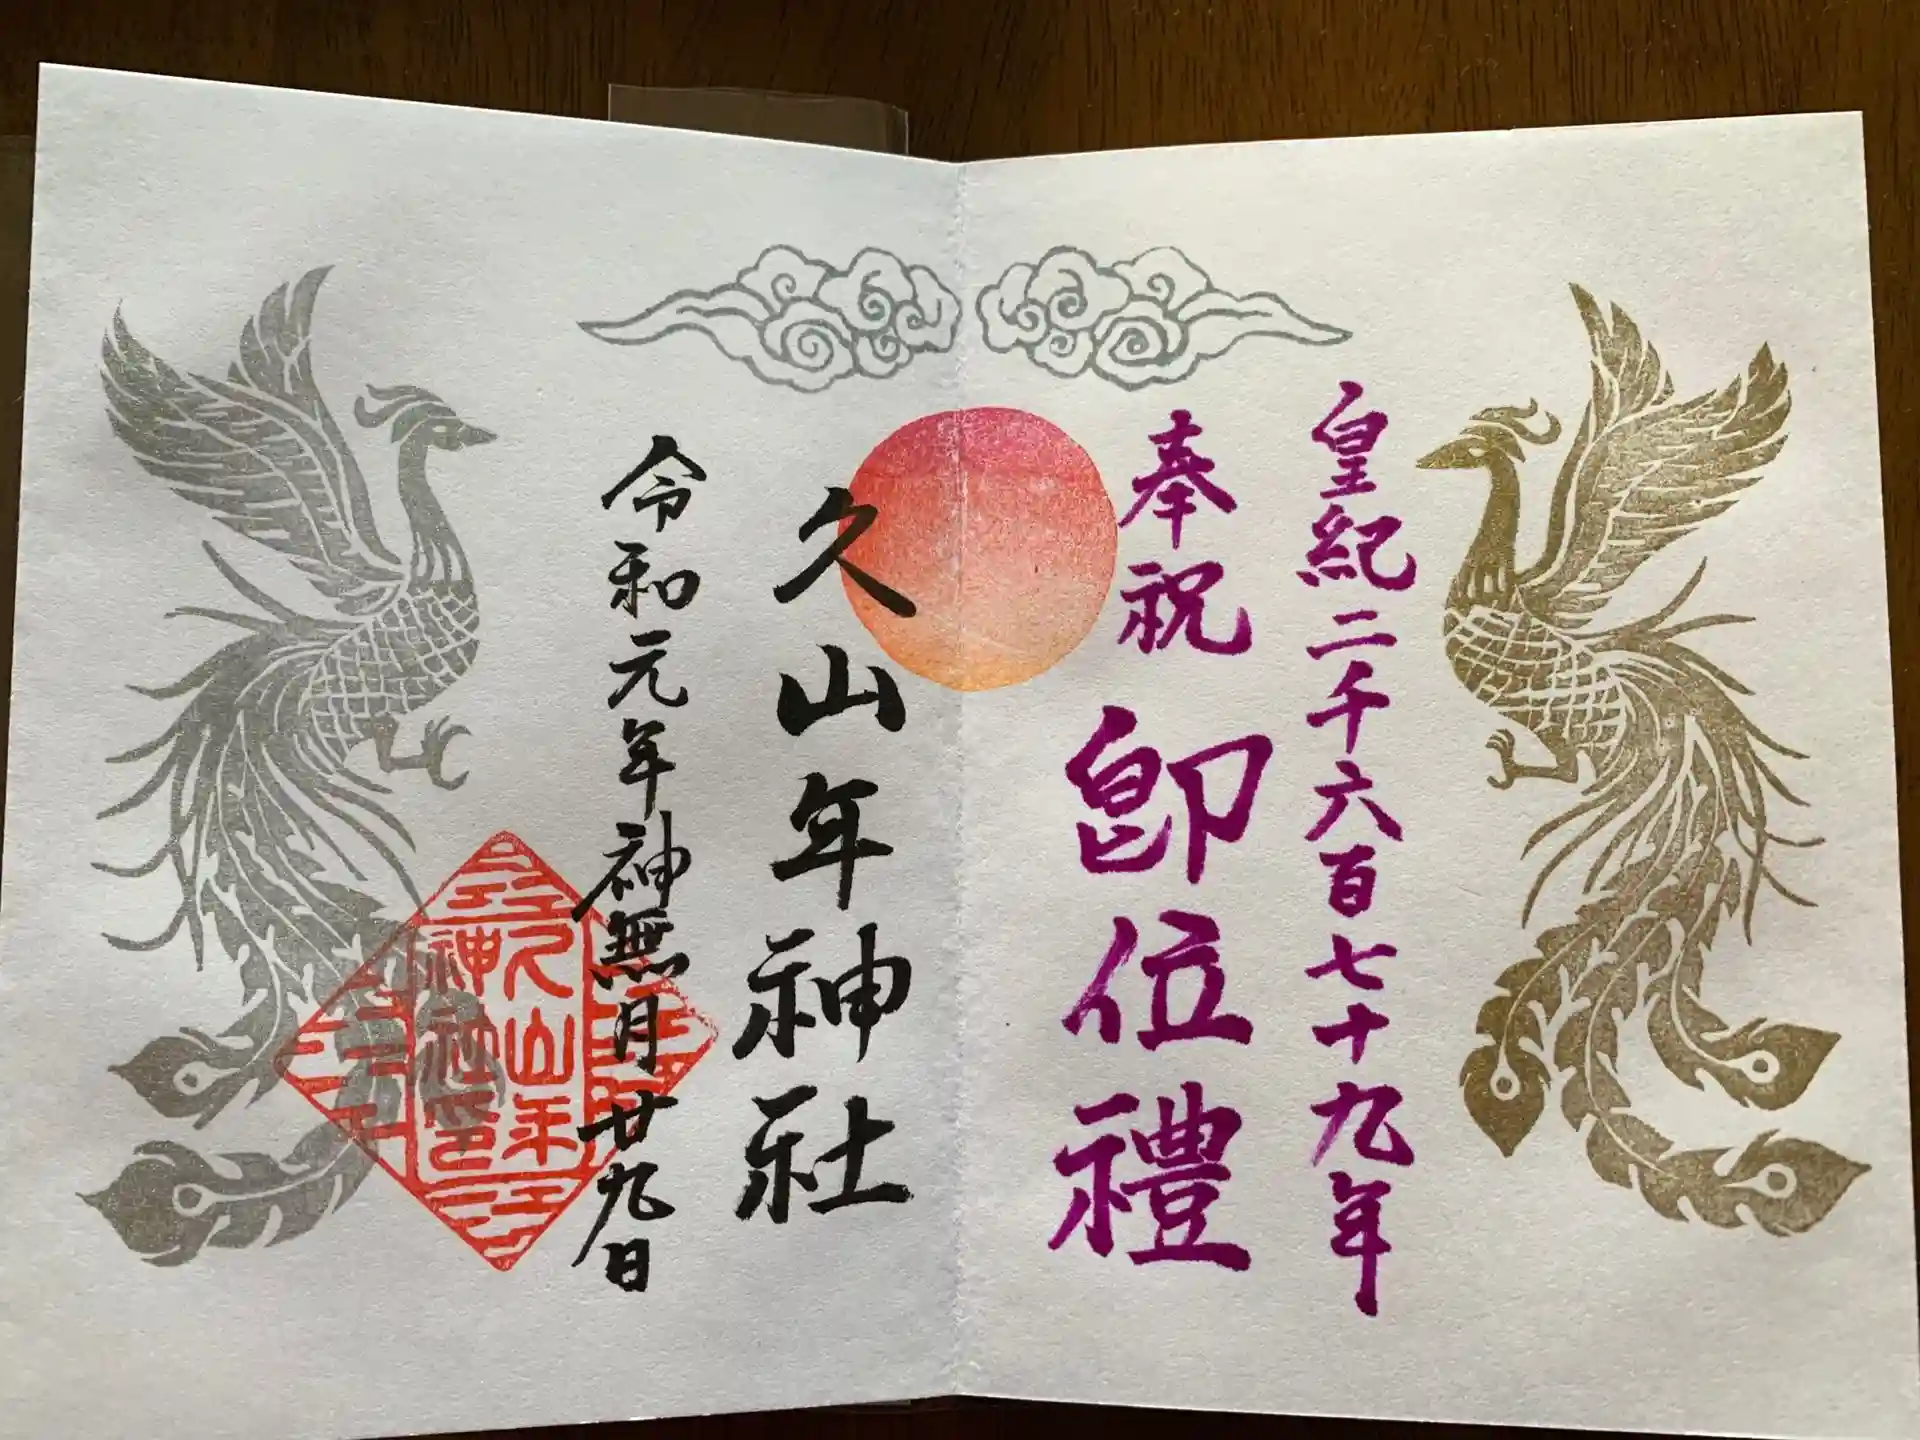 皇紀二千六百七十九年
奉祝
卽位禮
久山年神社
令和元年神無月廿九日
久山年
神社印